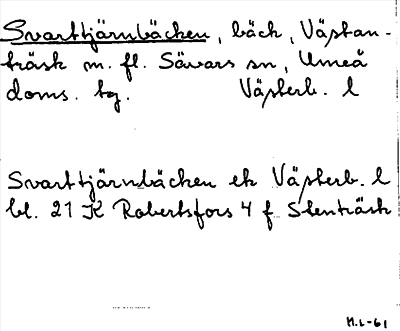 Svarttjärnbäcken, bäck, Västan-
träsk m. fl. Sävars sn, Umeå
doms. tg. Västerb. l
Svarttjärnbäcken ek Västerb. l
bl. 21 K Robertsfors 4 f Stenträsk
M.L-61